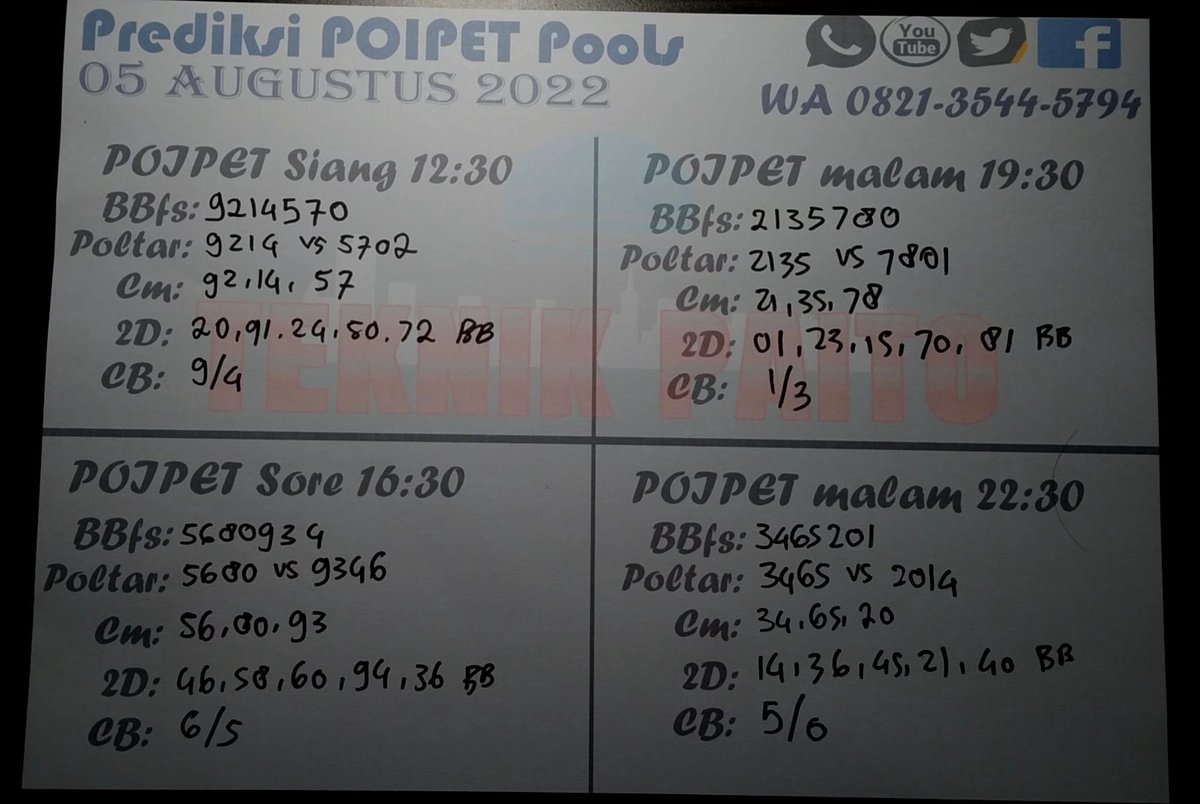 Prediksi POIPET Pools
05 AUGUSTUS 2022
You
Tube
WA 0821-3544-5794
TEKNIK PAITO
POIPET Siang 12:30
BBfs: 9214570
Poltar: 9214 vs 5702
Cm: 92,14, 57
2D: 20,91.24,50.72 BB
CB: 9/4
POIPET malam 19:30
BBfs: 2135780
Poltar: 2135 vs 7801
Cm: 21,35,78
2D: 01,23,15,70,81 BB
CB: 1/3
POIPET Sore 16:30
BBfs: 5680934
Poltar: 5680 vs 9346
Cm: 56,80,93
2D: 46,58,60,94,36 BB
CB: 6/5
POIPET malam 22:30
BBfs: 3465201
Poltar: 3465 vs 2014
Cm: 34,65,20
2D: 14,36,45,21,40 BB
CB: 5/0